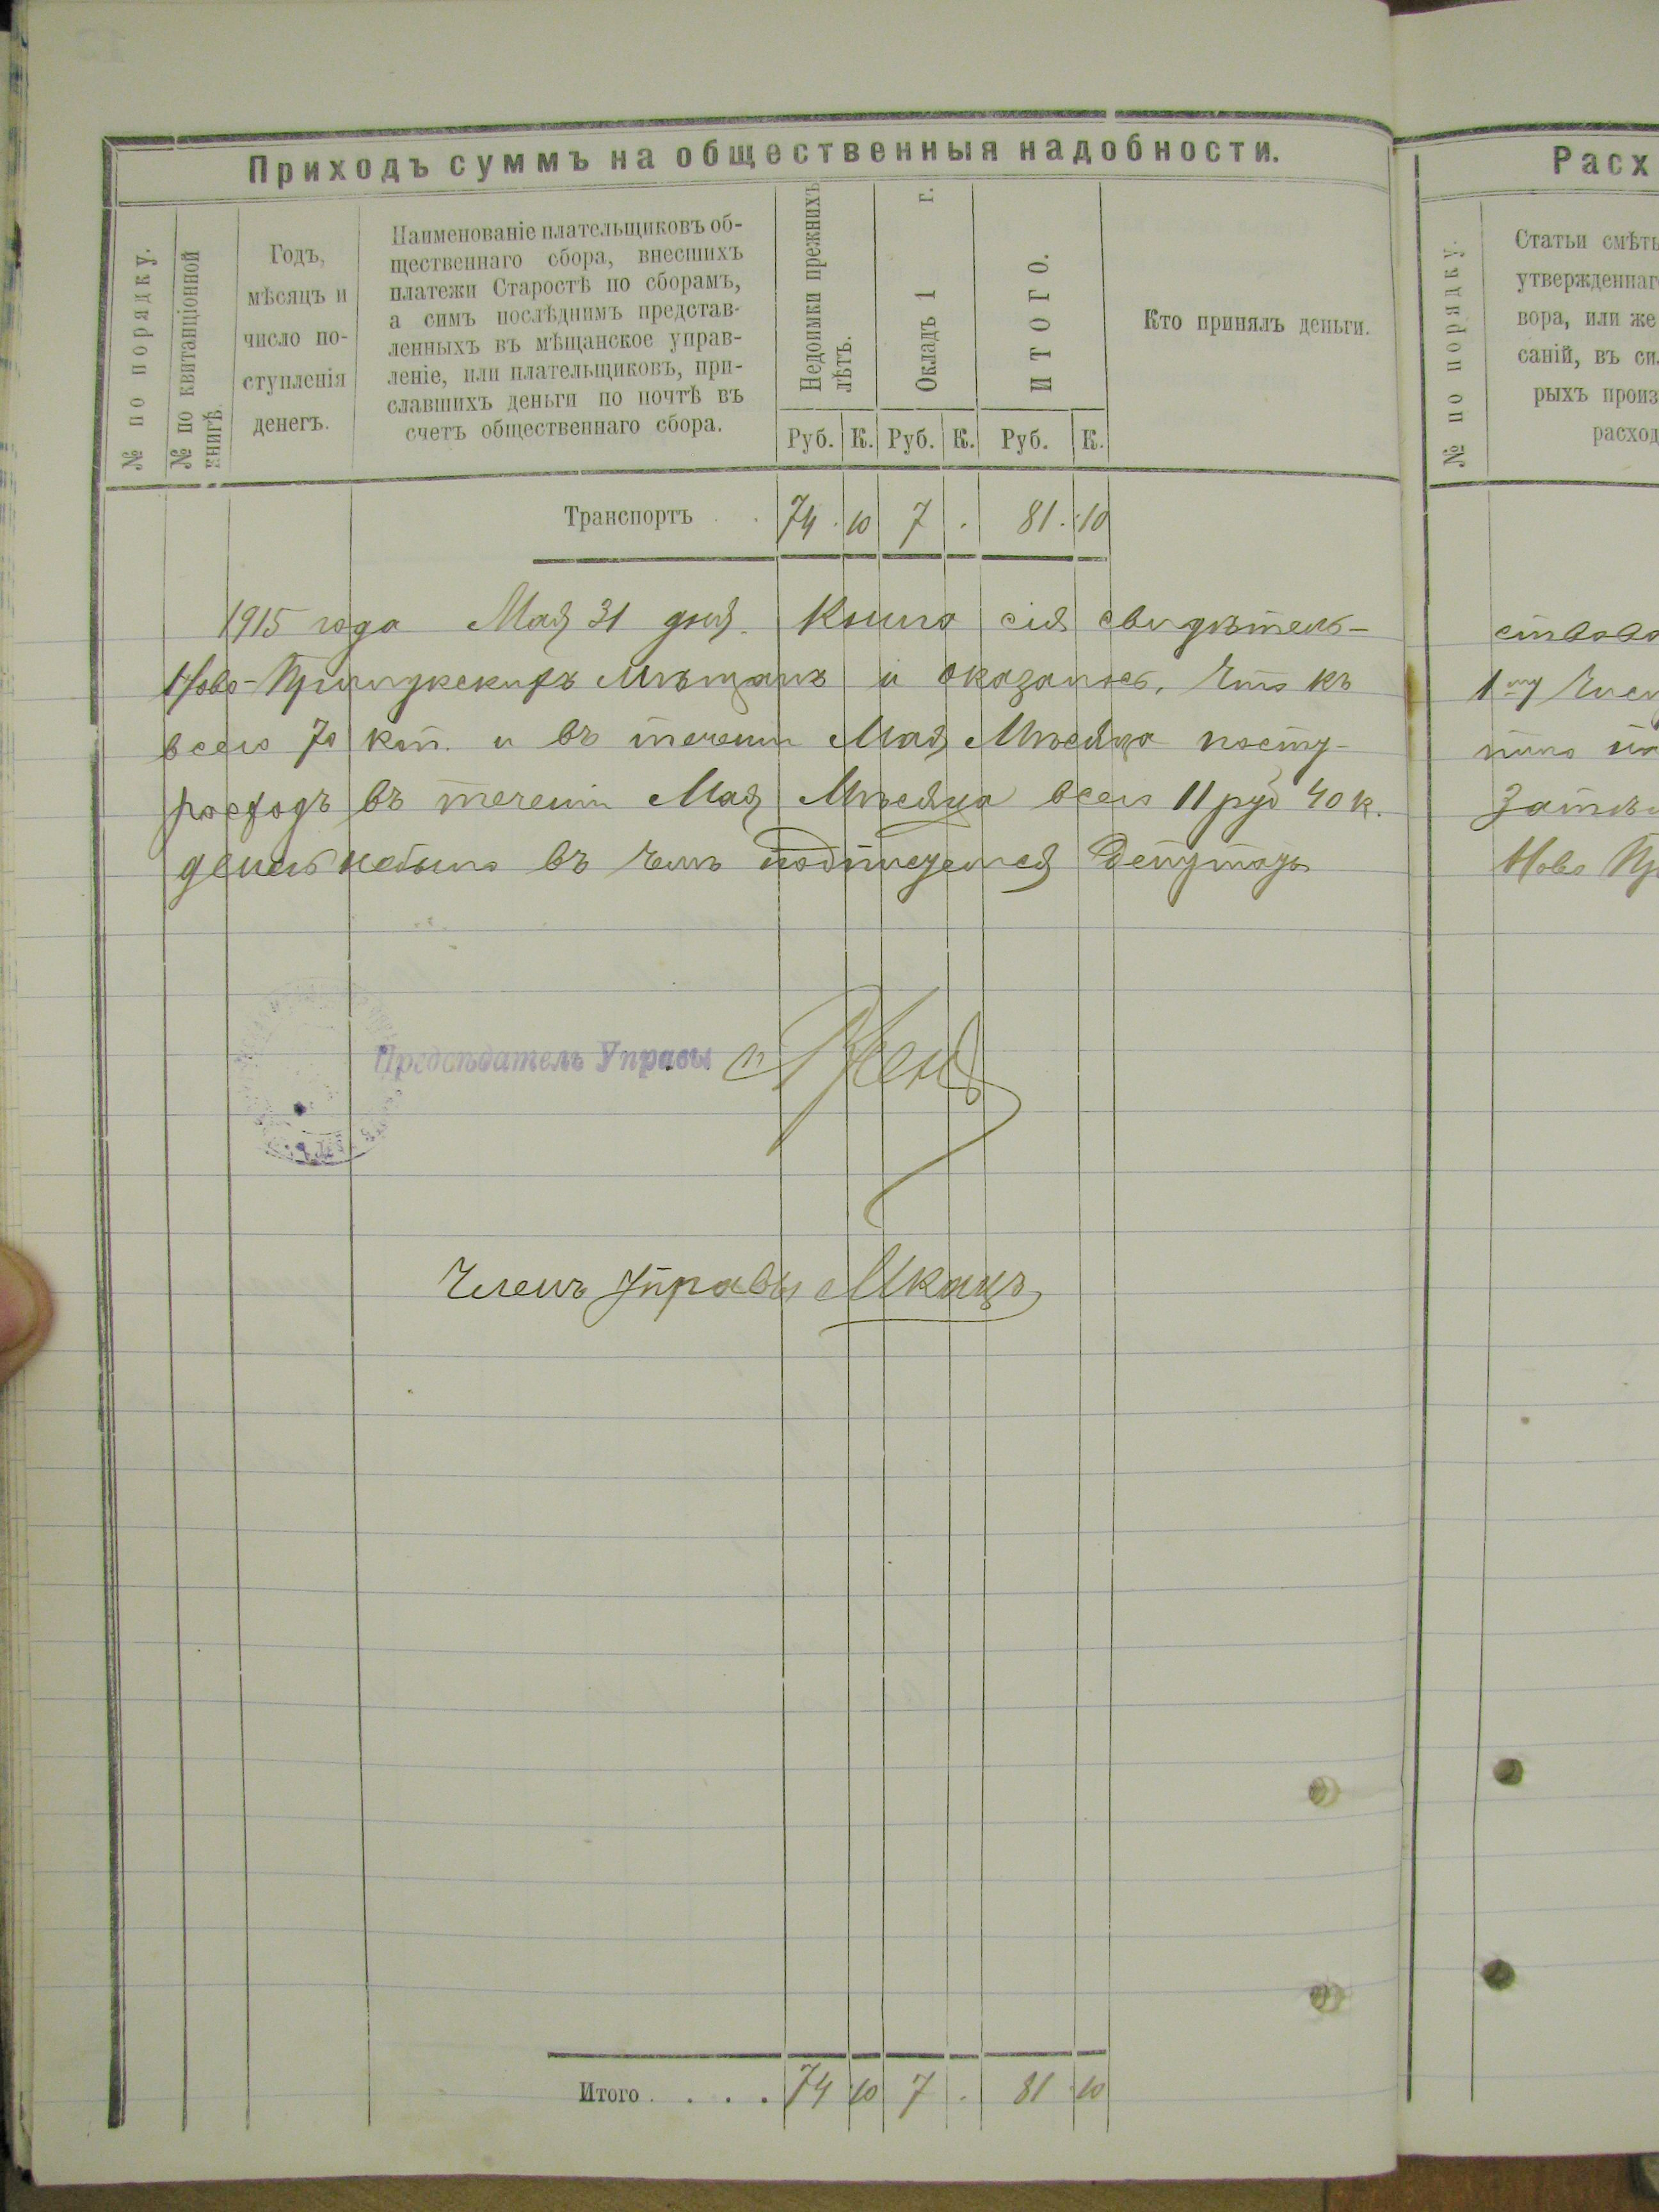 Приходъ суммъ на общественныя надобности.
№ по порядку.
№ по квитанціонной
книгѣ.
Годъ,
мѣсяцъ и
число по-
ступленія
денегъ.
Наименованіе плательщиковъ об-
щественнаго сбора, внесшихъ
платежи Старостѣ по сборамъ,
а симъ послѣднимъ представ-
ленныхъ въ мѣщанское управ-
леніе, или плательщиковъ, при-
славшихъ деньги по почтѣ въ
счетъ общественнаго сбора.
Недоимки прежнихъ
лѣтъ.
Окладъ 1 г.
ИТОГО.
Кто принялъ деньги.
Руб. К. Руб. К. Руб. К.
Транспортъ . . 74 . 10 7 . 81 . 10
1915 года Мая 31 дня. Книга сія свидѣтель-
Ново-Прилукскихъ Мѣщанъ и оказалось, что къ
всего 70 коп. и въ теченіи Мая Мѣсяца посту-
расходъ въ теченіи Мая Мѣсяца всего 11 руб 40 к.
денегъ небыло въ чемъ подписуемся Депутаты
Предсѣдатель Управы
Членъ Управы МКацъ
Итого . . . . 74 10 7 . 81 10
Расх
№ по порядку.
Статьи смѣты
утвержденнаг
вора, или же
саній, въ си
рыхъ произ
расход
ствова
1му Чис
пило
Затѣм
Ново Пр